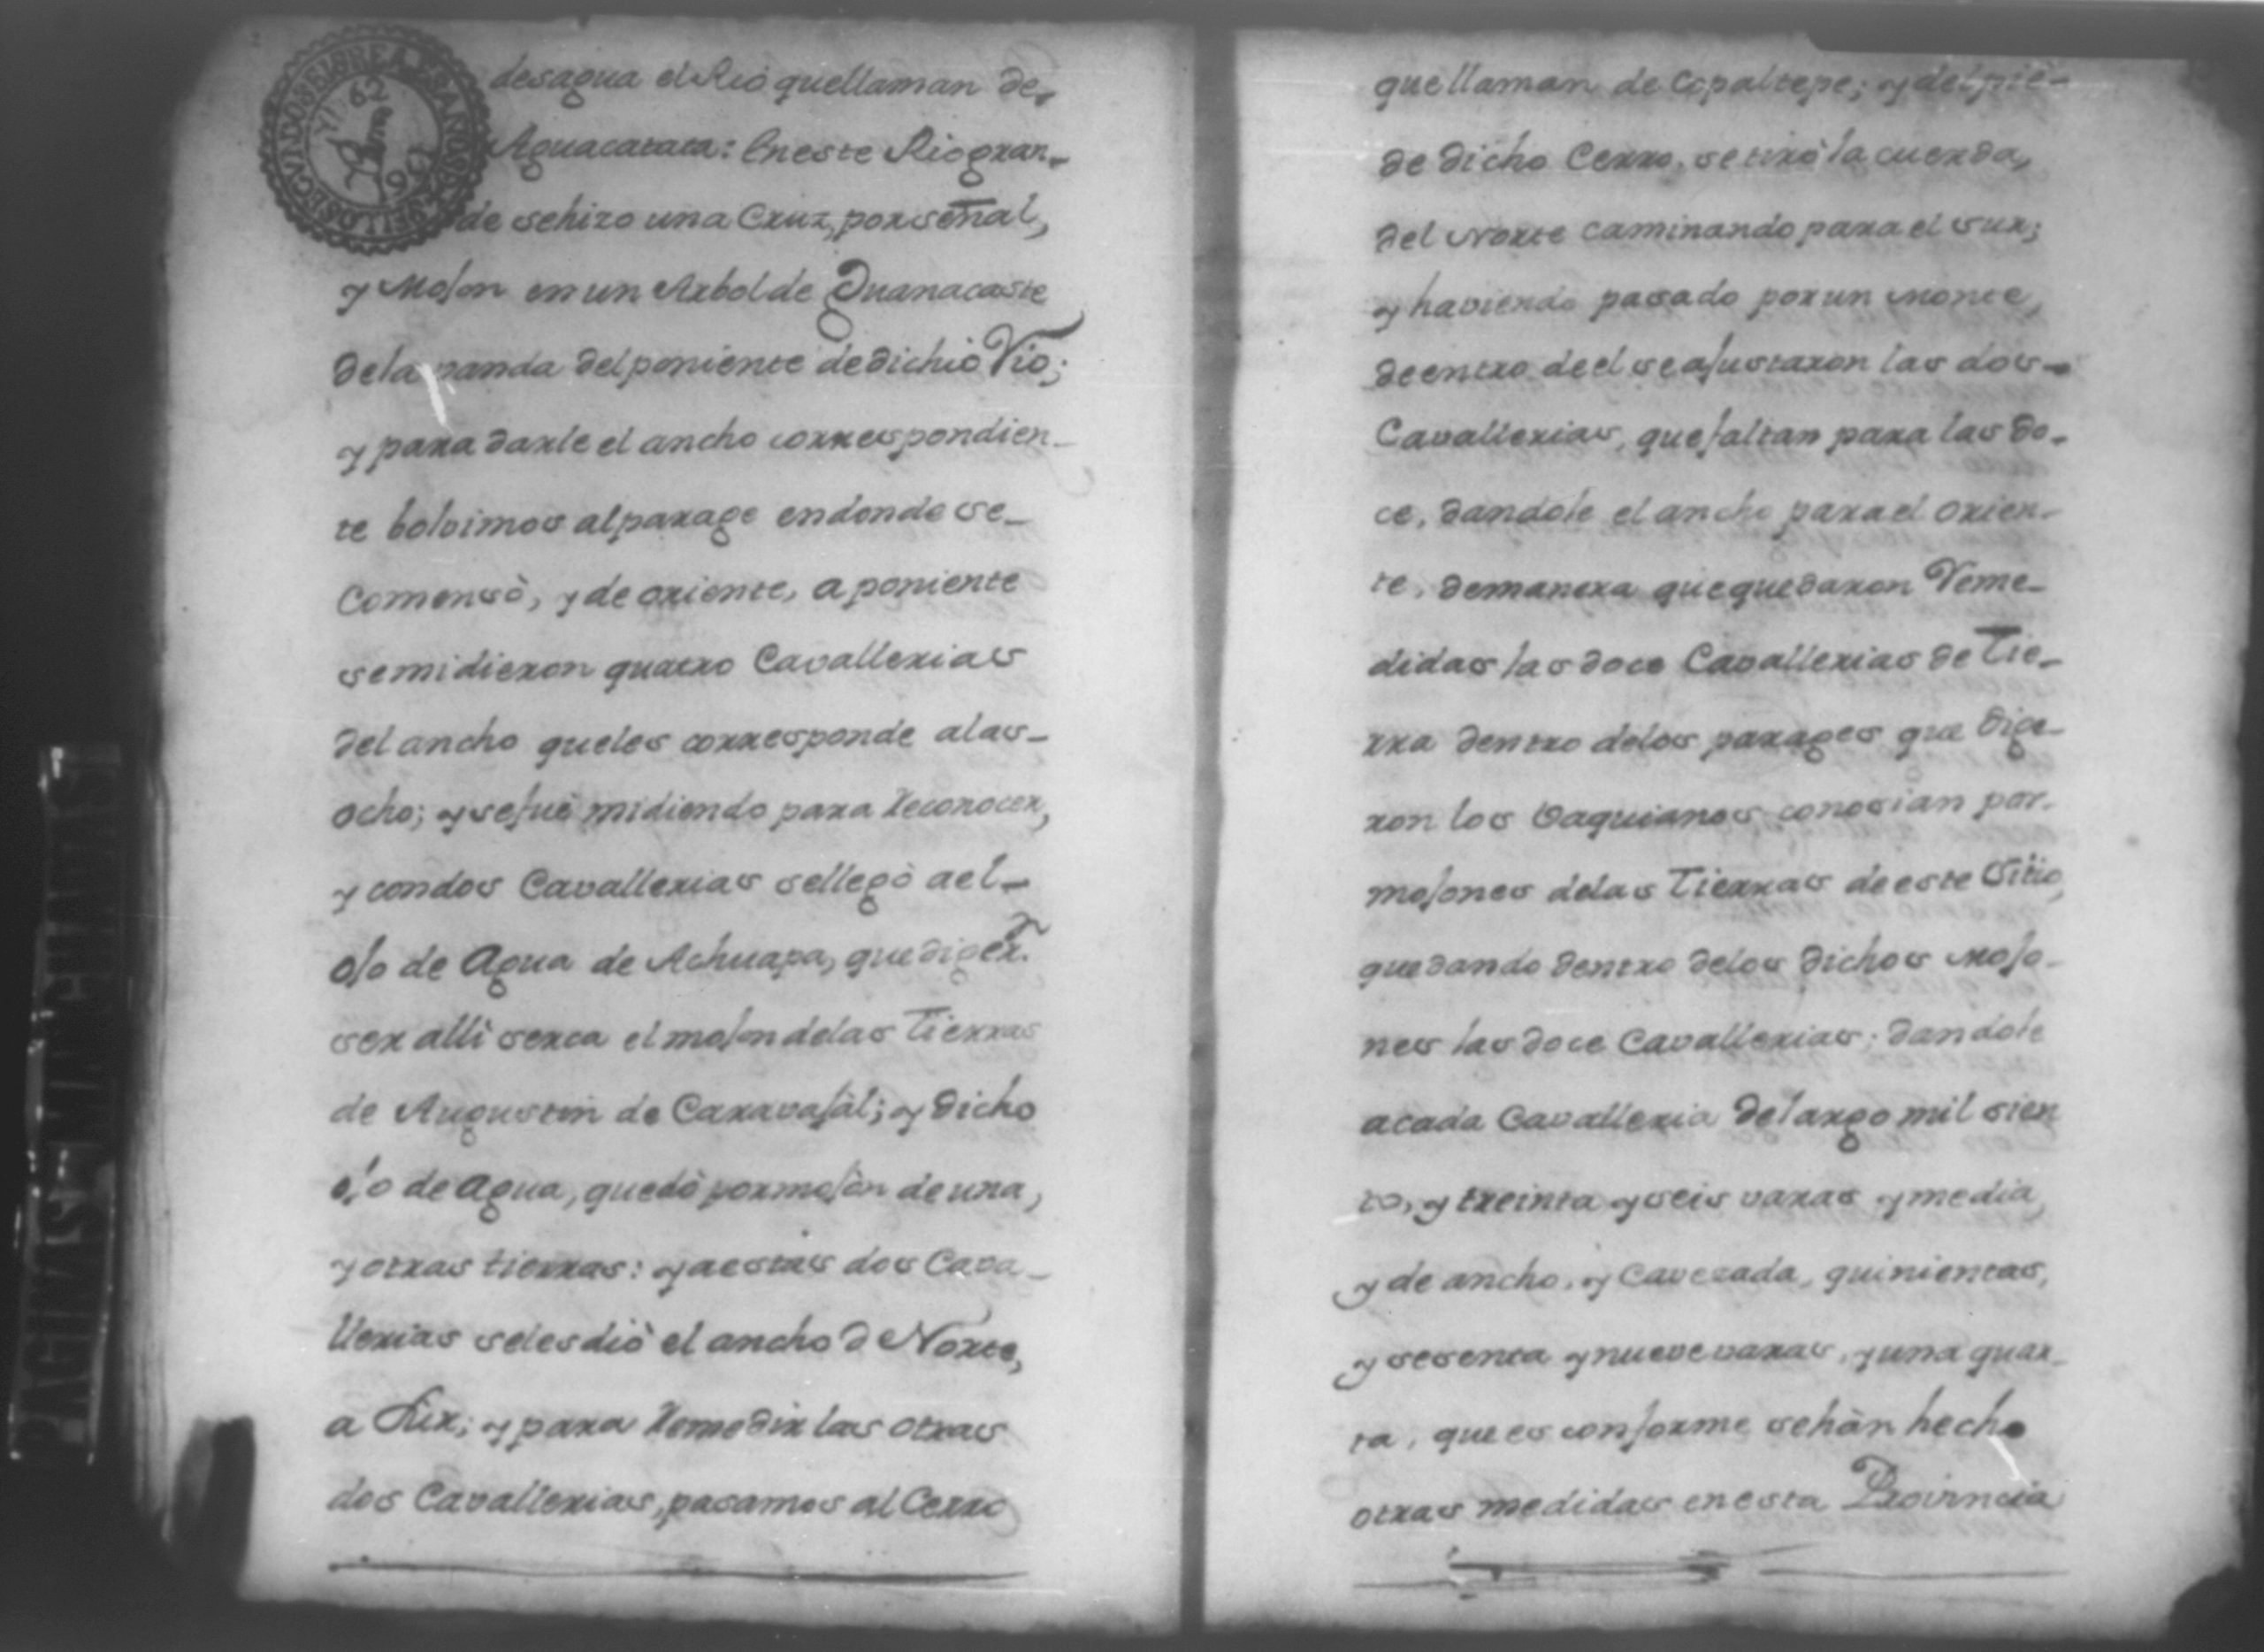 desagua el Rio quellaman de,
Aguacatata: En este Rio gran,
de sehizo una Cruz, por señal,
y Mojon en un Arbol de Guanacaste
dela vanda del poniente de dichio Rio;
y para darle el ancho correspondien-
te bolvimos alparage endonde se-
Comensò, y de oriente, a poniente
semidieron quatro Cavallerias
del ancho queles corresponde alas-
ocho; y sefuè midiendo para Reconocer,
y condos Cavallerias sellegò ael-
ojo de Agua de Achuapa, que digerñ.
ser alli serca el mojon delas Tierras
de Augustin de Caravajàl; y dicho
ojo de agua, quedò pormojòn de una,
y otras tierras: y aestas dos Cava-
llerias selesdiò el ancho d Norte,
a Sur; y para Remedir las otras
dos Cavallerias, pasamos al Cerro
quellaman de Copaltepe; y delpie-
de dicho Cerro, se tirò la cuerda,
del Norte caminando para el sur;
y haviendo pasado por un monte,
deentro de el se ajustaron las dos-
Cavallerias, que faltan para las do-
ce, dandole el ancho para el orien-
te, demanera quequedaron Reme-
didas las doce Cavallerias de Tie-
rra dentro delos parages que dige-
ron los Vaquianos conosian por-
mojones delas Tierras de este Sitio,
quedando dentro delos dichos Mojo-
nes las doce Cavallerias; dandole
acada Cavalleria delargo mil sien
to, y treinta y seis varas y media,
y de ancho, y Cavezada, quinientas,
y sesenta y nueve varas, y una quar-
ta, que es conforme sehàn hecho
otras medidas en esta Provincia